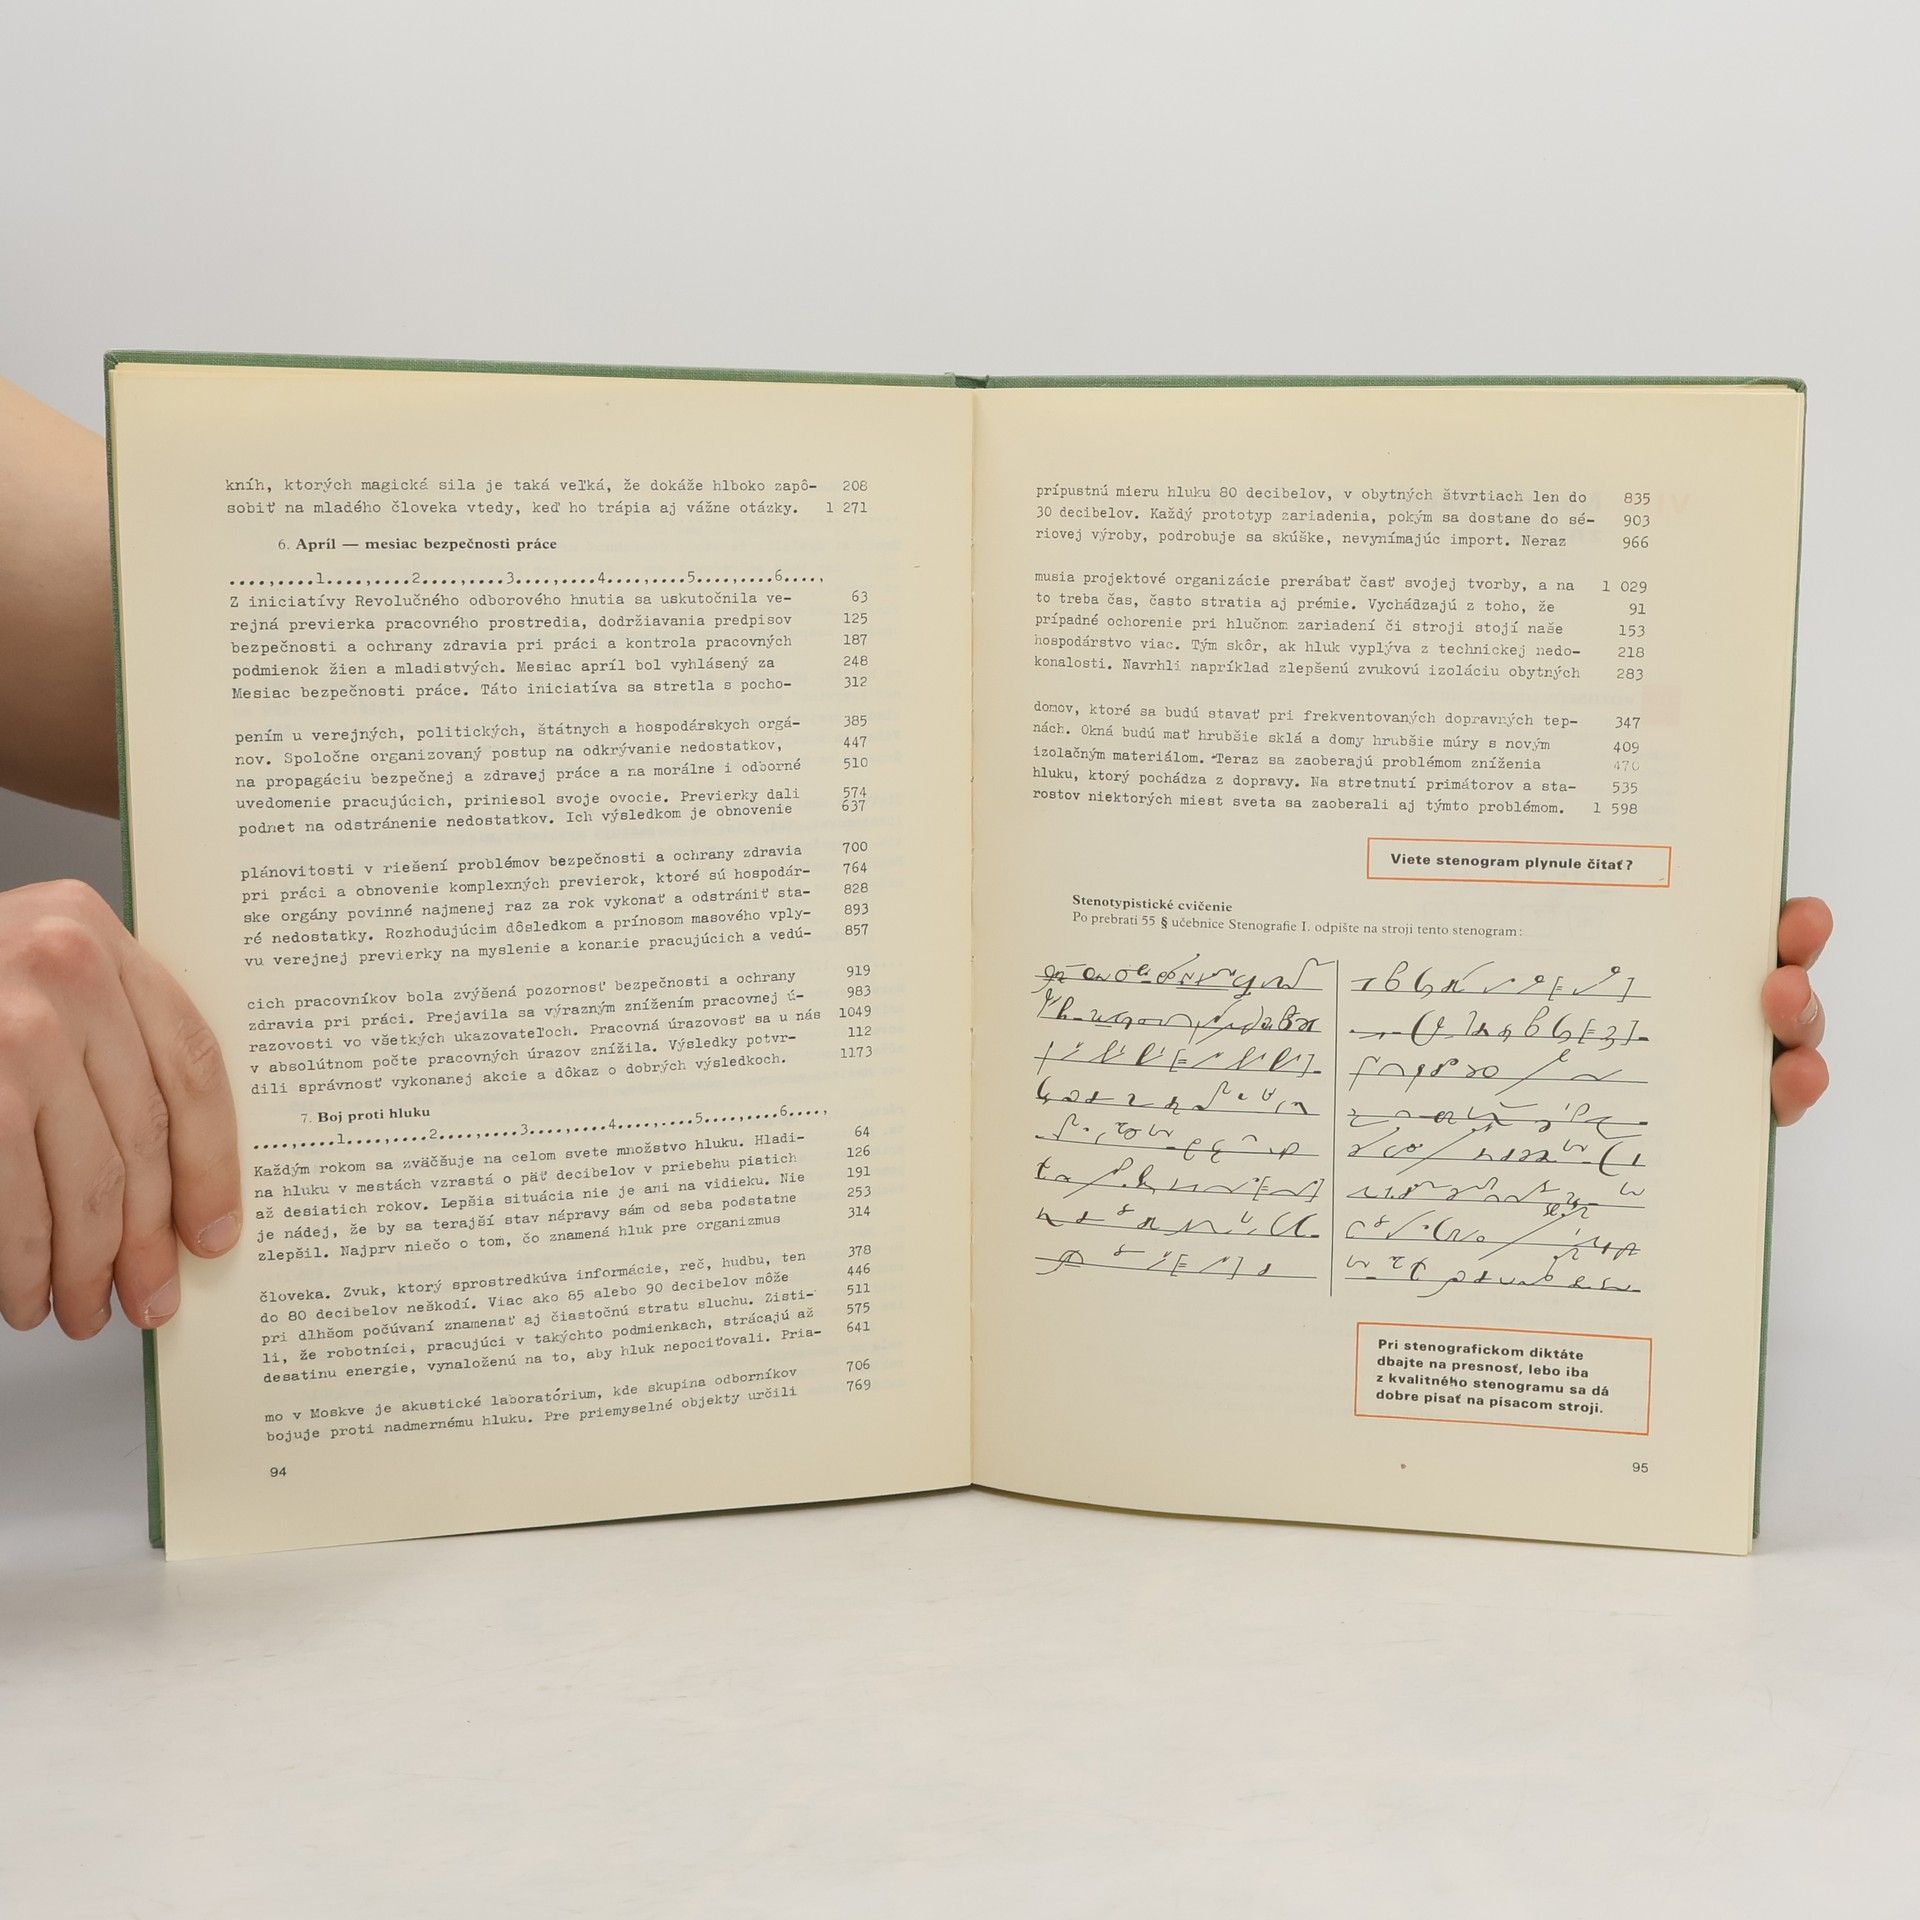 kníh, ktorých magická sila je taká veľká, že dokáže hlboko zapô- 208
sobiť na mladého človeka vtedy, keď ho trápia aj vážne otázky. 1 271
6. Apríl — mesiac bezpečnosti práce
....,....1....,....2....,....3....,....4....,....5....,....6....,
Z iniciatívy Revolučného odborového hnutia sa uskutočnila ve- 63
rejná previerka pracovného prostredia, dodržiavania predpisov 125
bezpečnosti a ochrany zdravia pri práci a kontrola pracovných 187
podmienok žien a mladistvých. Mesiac apríl bol vyhlásený za 248
Mesiac bezpečnosti práce. Táto iniciatíva sa stretla s pocho- 312
pením u verejných, politických, štátnych a hospodárskych orgá- 385
nov. Spoločne organizovaný postup na odkrývanie nedostatkov, 447
na propagáciu bezpečnej a zdravej práce a na morálne i odborné 510
uvedomenie pracujúcich, priniesol svoje ovocie. Previerky dali 574
podnet na odstránenie nedostatkov. Ich výsledkom je obnovenie 637
plánovitosti v riešení problémov bezpečnosti a ochrany zdravia 700
pri práci a obnovenie komplexných previerok, ktoré sú hospodár- 764
ske orgány povinné najmenej raz za rok vykonať a odstrániť sta- 828
ré nedostatky. Rozhodujúcim dôsledkom a prínosom masového vply- 893
vu verejnej previerky na myslenie a konanie pracujúcich a vedú- 857
cich pracovníkov bola zvýšená pozornosť bezpečnosti a ochrany 919
zdravia pri práci. Prejavila sa výrazným znížením pracovnej ú- 983
razovosti vo všetkých ukazovateľoch. Pracovná úrazovosť sa u nás 1049
v absolútnom počte pracovných úrazov znížila. Výsledky potvr- 112
dili správnosť vykonanej akcie a dôkaz o dobrých výsledkoch. 1173
7. Boj proti hluku
....,....1....,....2....,....3....,....4....,....5....,....6....,
Každým rokom sa zväčšuje na celom svete množstvo hluku. Hladi- 64
na hluku v mestách vzrastá o päť decibelov v priebehu piatich 126
až desiatich rokov. Lepšia situácia nie je ani na vidieku. Nie 191
je nádej, že by sa terajší stav nápravy sám od seba podstatne 253
zlepšil. Najprv niečo o tom, čo znamená hluk pre organizmus 314
človeka. Zvuk, ktorý sprostredkúva informácie, reč, hudbu, ten 378
do 80 decibelov neškodí. Viac ako 85 alebo 90 decibelov môže 446
pri dlhšom počúvaní znamenať aj čiastočnú stratu sluchu. Zisti- 511
li, že robotníci, pracujúci v takýchto podmienkach, strácajú až 575
desatinu energie, vynaloženú na to, aby hluk nepociťovali. Pria- 641
mo v Moskve je akustické laboratórium, kde skupina odborníkov 706
bojuje proti nadmernému hluku. Pre priemyselné objekty určili 769
94
prípustnú mieru hluku 80 decibelov, v obytných štvrtiach len do 835
30 decibelov. Každý prototyp zariadenia, pokým sa dostane do sé- 903
riovej výroby, podrobuje sa skúške, nevynímajúc import. Neraz 966
musia projektové organizácie prerábať časť svojej tvorby, a na 1 029
to treba čas, často stratia aj prémie. Vychádzajú z toho, že 91
prípadné ochorenie pri hlučnom zariadení či stroji stojí naše 153
hospodárstvo viac. Tým skôr, ak hluk vyplýva z technickej nedo- 218
konalosti. Navrhli napríklad zlepšenú zvukovú izoláciu obytných 283
domov, ktoré sa budú stavať pri frekventovaných dopravných tep- 347
nách. Okná budú mať hrubšie sklá a domy hrubšie múry s novým 409
izolačným materiálom. Teraz sa zaoberajú problémom zníženia 470
hluku, ktorý pochádza z dopravy. Na stretnutí primátorov a sta- 535
rostov niektorých miest sveta sa zaoberali aj týmto problémom. 1 598
Viete stenogram plynule čítať?
Stenotypistické cvičenie
Po prebratí 55 § učebnice Stenografie I. odpíšte na stroji tento stenogram:
Pri stenografickom diktáte
dbajte na presnosť, lebo iba
z kvalitného stenogramu sa dá
dobre písať na písacom stroji.
95